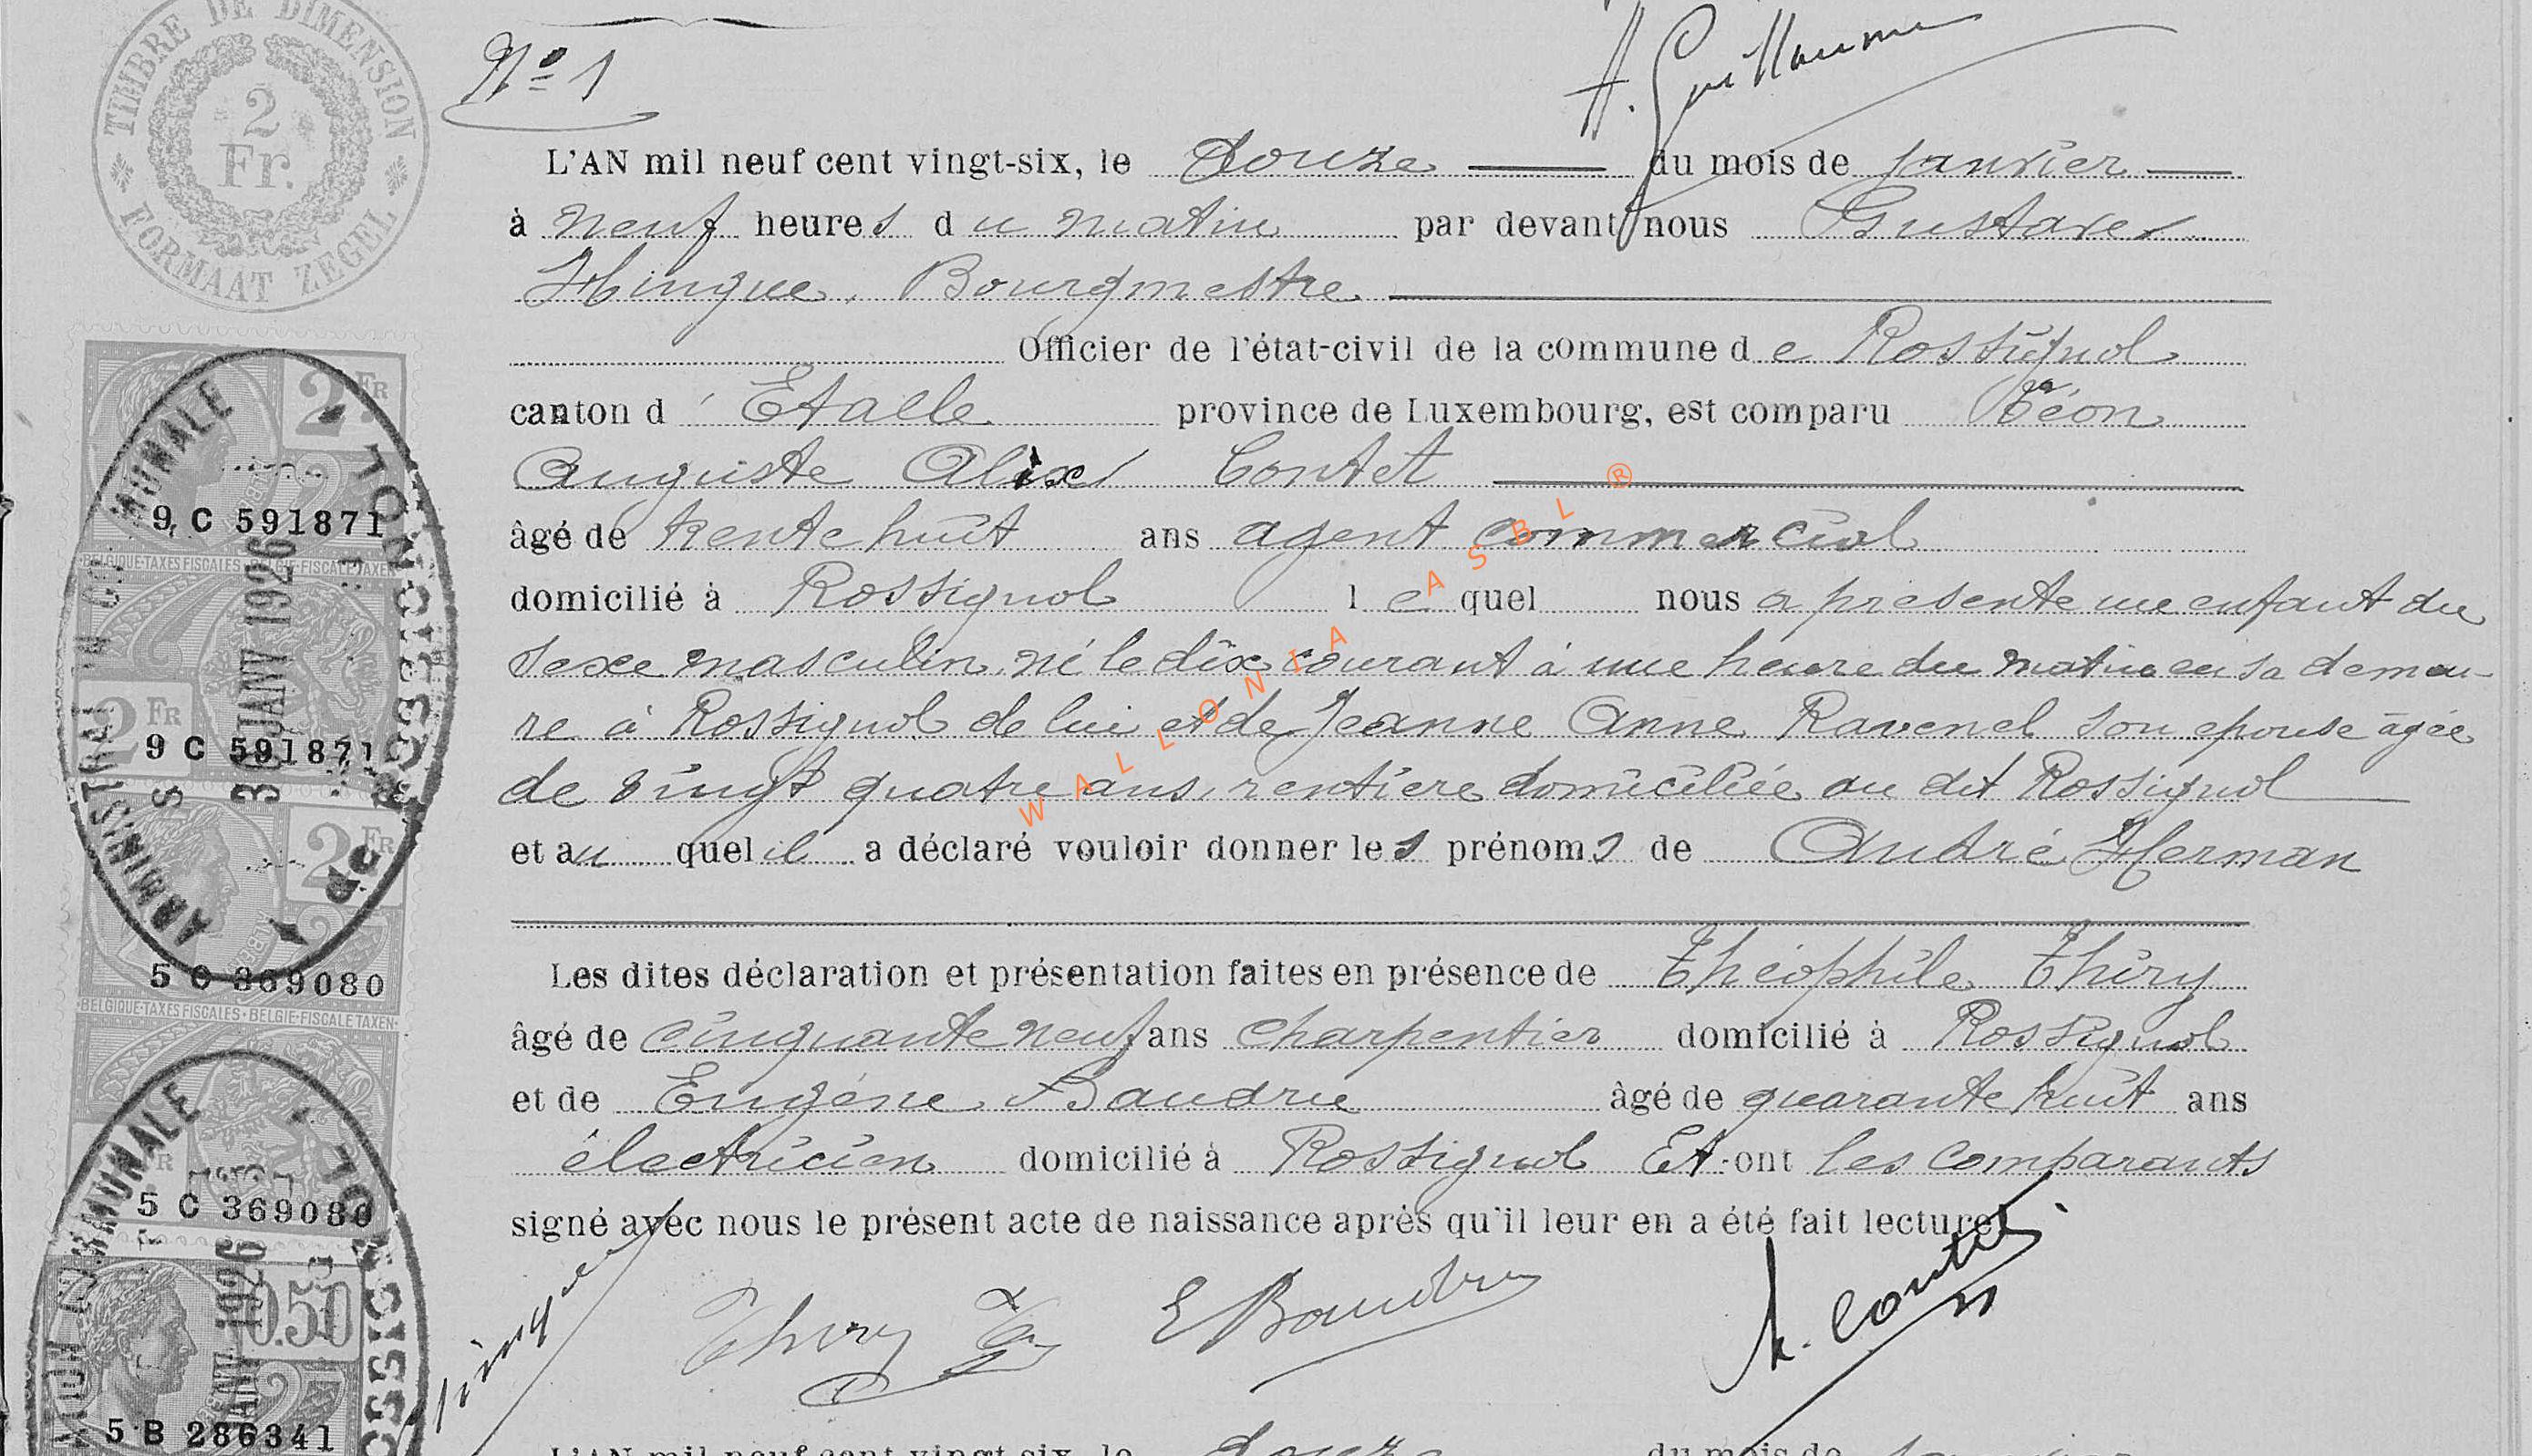 TIMBRE DE DIMENSION
2
Fr.
FORMAAT ZEGEL
Nº 1
A. Guillaume
L'AN mil neuf cent vingt-six, le douze du mois de janvier
à neuf heures du matin par devant nous Gustave
Hinque, Bourgmestre
Officier de l'état-civil de la commune de Rossignol
canton d'Etalle province de Luxembourg, est comparu Léon
Auguste Alix Contet
âgé de trente huit ans agent commercial
domicilié à Rossignol lequel nous a présenté un enfant du
sexe masculin, né le dix courant à une heure du matin en sa demeu-
re à Rossignol de lui et de Jeanne Anne Ravenel son epouse âgée
de vingt quatre ans, rentière domiciliée au dit Rossignol
et au quel il a déclaré vouloir donner les prénoms de André Herman
Les dites déclaration et présentation faites en présence de Théophile Thiry
âgé de cinquante neuf ans charpentier domicilié à Rossignol
et de Eugène Baudru âgé de quarante huit ans
électricien domicilié à Rossignol Et ont les comparants
signé avec nous le présent acte de naissance après qu'il leur en a été fait lecture
Hinque
Thiry
E Baudru
A. Contet
L'AN mil neuf cent vingt-six, le douze du mois de janvier
2 FR
9 C 591871
BELGIQUE-TAXES FISCALES · BELGIE-FISCALE TAXEN
2 FR
9 C 591871
2 FR
5 C 369080
BELGIQUE-TAXES FISCALES · BELGIE-FISCALE TAXEN
5 C 369080
0.50
5 B 286341
ADMINISTRATION COMMUNALE
30 JANV 1926
DE ROSSIGNOL
COMMUNALE
JANV 1926
ROSSIGNOL
WALLONIA ASBL ®